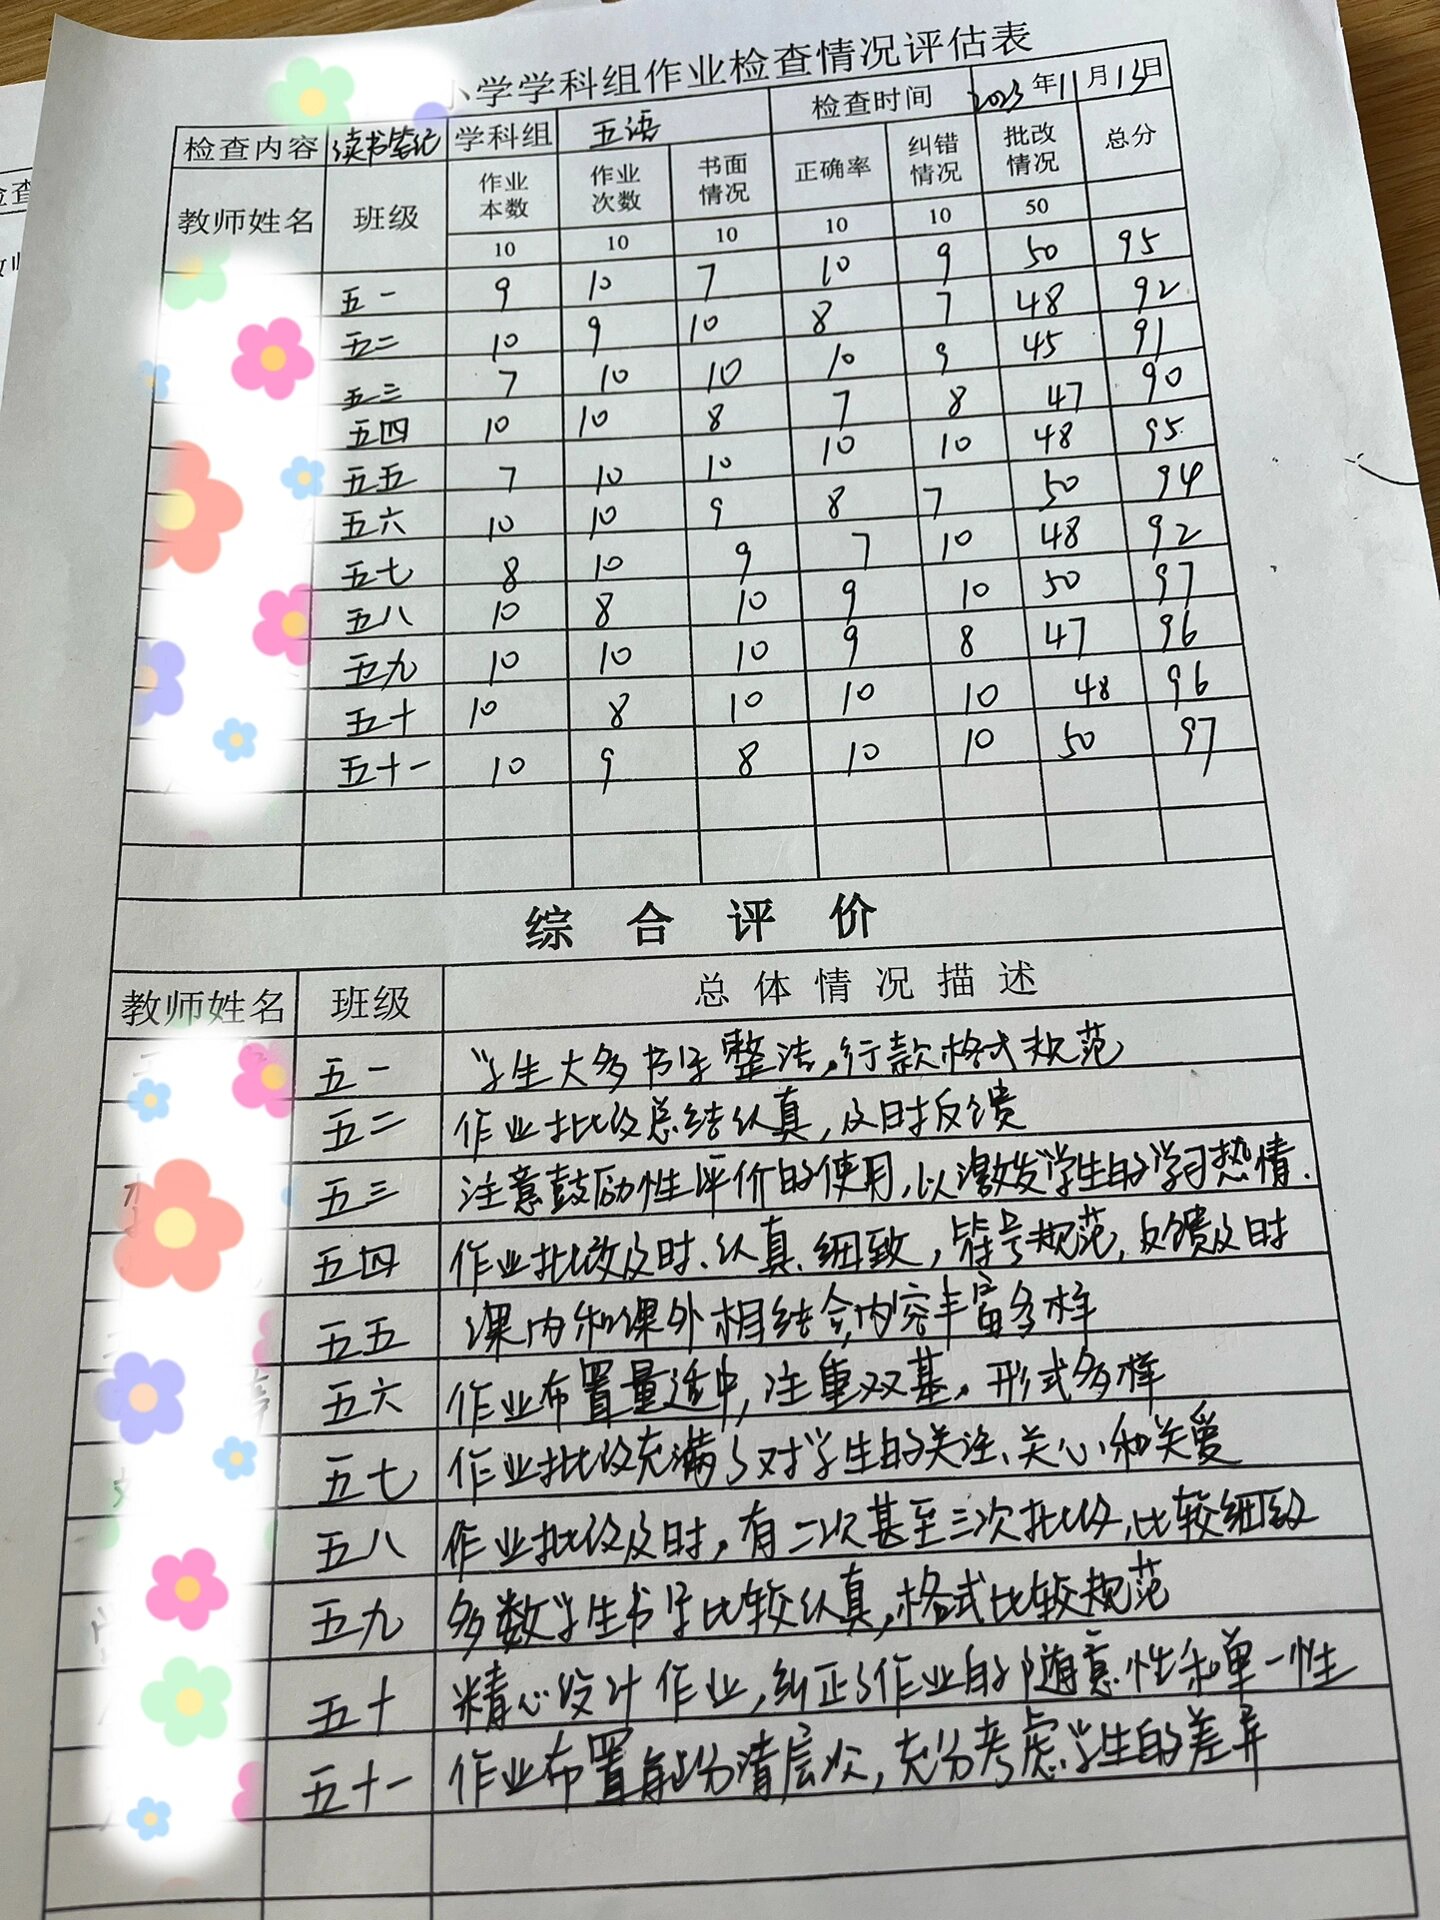 小学学科组作业检查情况评估表
检查内容 读书笔记 学科组 五语 检查时间 2023年11月13日
教师姓名 班级 作业本数 作业次数 书面情况 正确率 纠错情况 批改情况 总分
10 10 10 10 10 50
五一 9 10 7 10 9 50 95
五二 10 9 10 8 7 48 92
五三 7 10 10 10 9 45 91
五四 10 10 8 7 8 47 90
五五 7 10 10 10 10 48 95
五六 10 10 9 8 7 50 94
五七 8 10 9 7 10 48 92
五八 10 8 10 9 10 50 97
五九 10 10 10 9 8 47 96
五十 10 8 10 10 10 48 96
五十一 10 9 8 10 10 50 97
综合评价
教师姓名 班级 总体情况描述
五一 学生大多书写整洁,行款格式规范
五二 作业批改总结认真,及时反馈
五三 注意鼓励性评价的使用,以激发学生的学习热情.
五四 作业批改及时、认真、细致,符号规范,反馈及时
五五 课内和课外相结合,内容丰富多样
五六 作业布置量适中,注重双基,形式多样
五七 作业批改充满了对学生的关注、关心和关爱
五八 作业批改及时,有二次甚至三次批改,比较细致
五九 多数学生书写比较认真,格式比较规范
五十 精心设计作业,纠正了作业的随意性和单一性
五十一 作业布置能分清层次,充分考虑学生的差异